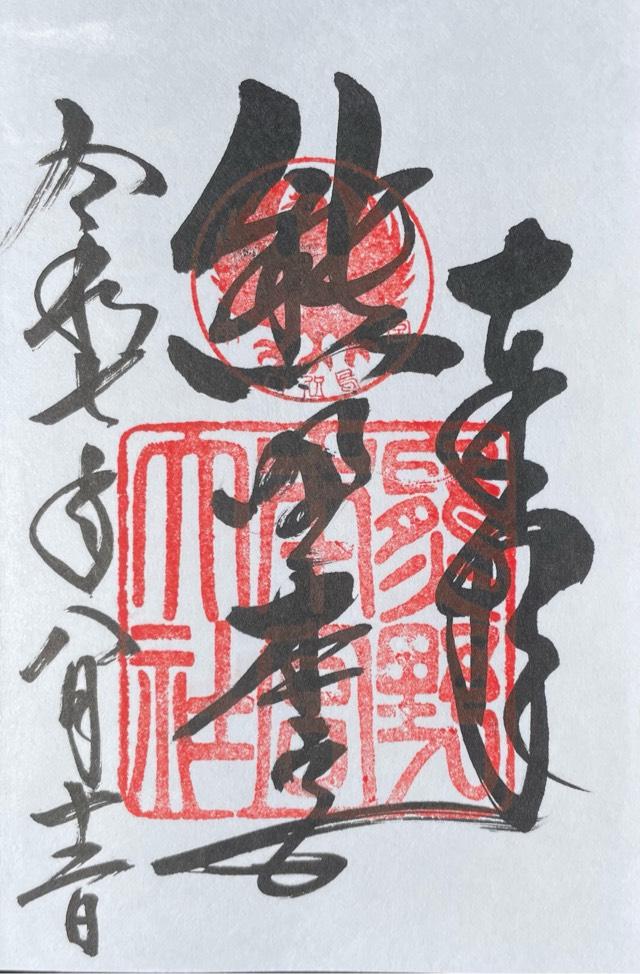 奉拝
熊野本宮
令和七年八月十三日
熊野
本宮
大社